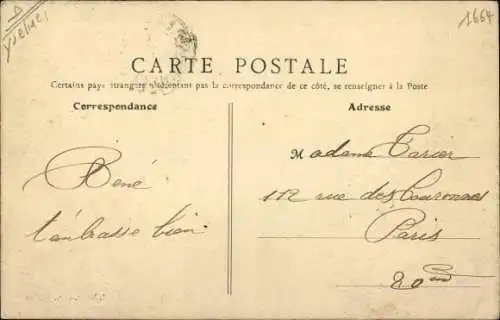 1664
CARTE POSTALE
Certains pays étrangers n'acceptant pas la correspondance de ce côté, se renseigner à la Poste
Correspondance
Adresse
René
t'embrasse bien
Madame Carier
112 rue des Couronnes
Paris
20